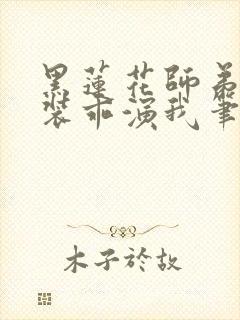 黑蓮花師弟
裝乖演我筆
木子於故